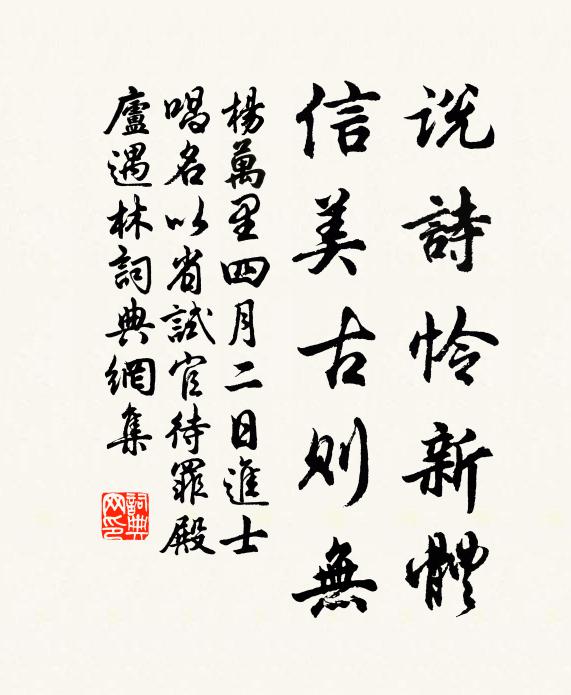 説詩怜新體
信美古則無
楊萬里四月二日進士
唱名以省試官待罪殿
廬遇林詞典網集
詞典网印